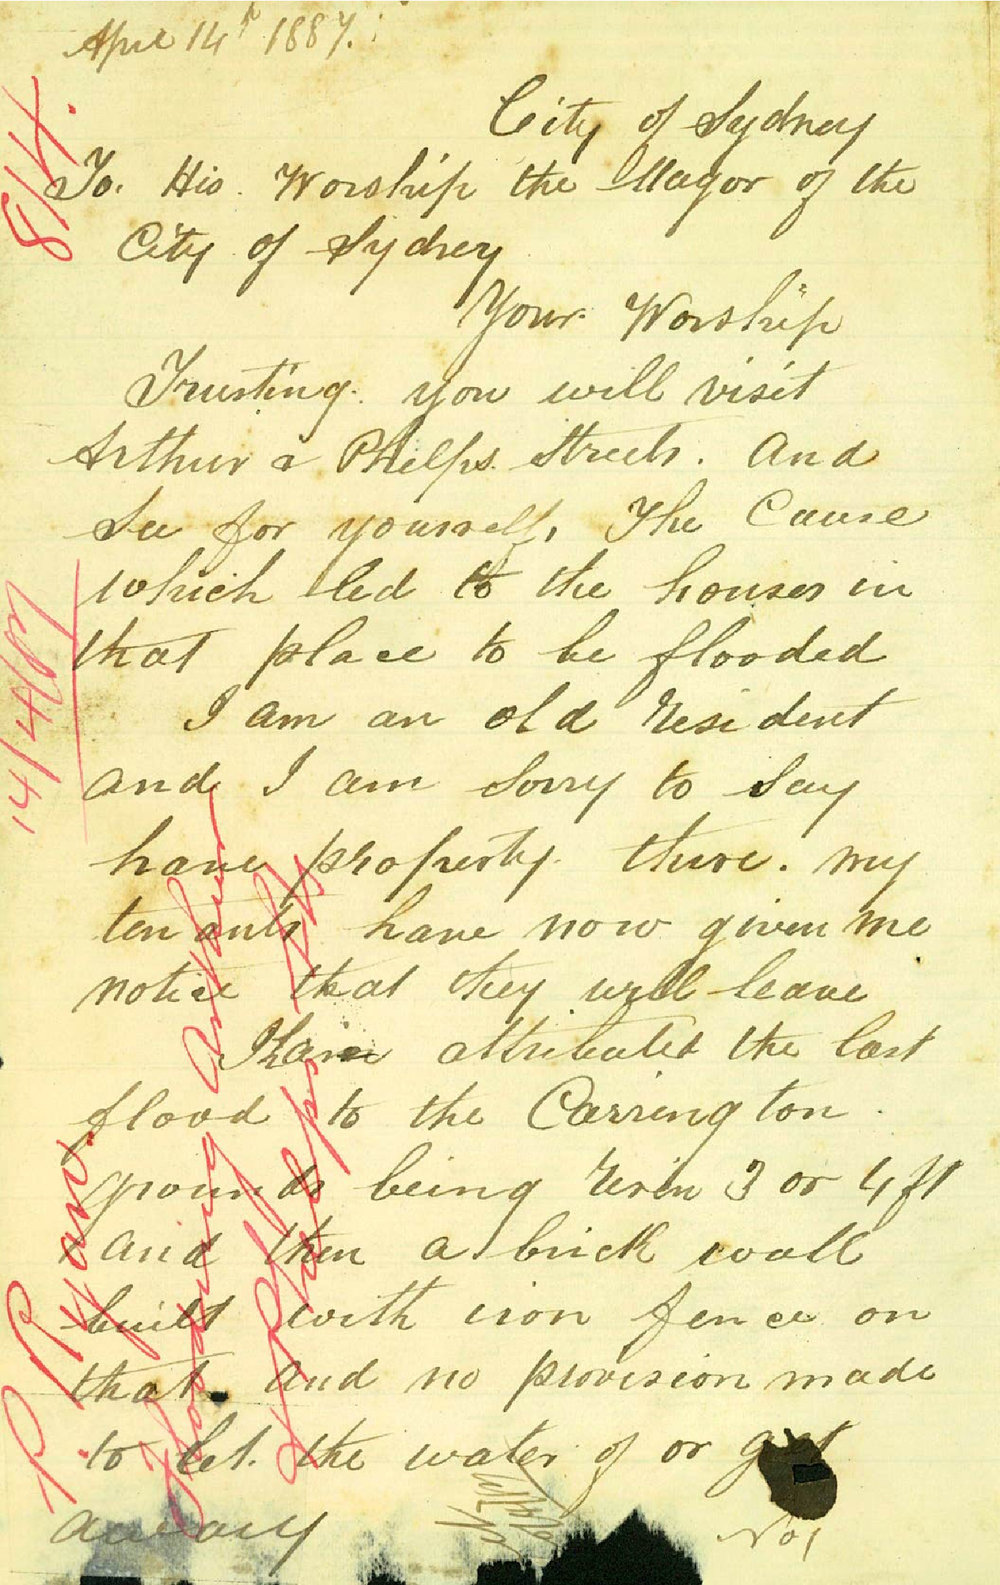 April 14th 1887.
City of Sydney
To. His. Worship the Mayor of the
City of Sydney
Your Worship
Trusting. you will visit
Arthur & Phelps. Streets. And
See for yourself, The Cause
which led to the houses in
that place to be flooded
I am an old resident
and I am sorry to say
have property there. my
tenants have now given me
notice that they will leave
I have attributed the last
flood to the Carrington
grounds being risen 3 or 4 ft
and then a brick wall
built with iron fence on
that. And no provision made
to let. the water of or get
away
No 1
814.
14/4/87
P. Ryan
Flooding Arthur
& Phelps Sts